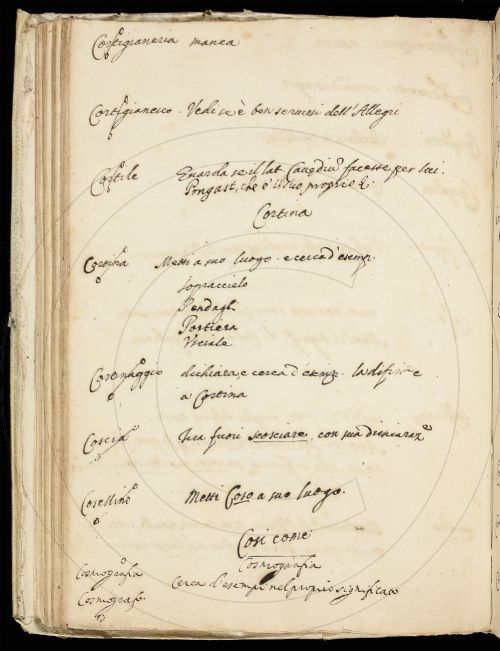 Cortigianeria manca
Cortigianesco. Vedi se è ben servirsi dell'Allegri
Cortile Guarda se il lat.
Pongasi, che è il suo proprio
Cortina
Cortina Metti a suo luogo. e cerca d'esemp.
sopraccielo
Pendagli
Portiera
Usciale
dichiara, e cerca d'esemp. la difin e
a Cortina
Coscia tira fuori scosciare. con sua dichiaraz.
Cosellino Metti Coso a suo luogo.
Così come
Cosmografia
Cosmografia Cerca d'esempi nel proprio significato
Cosmografo